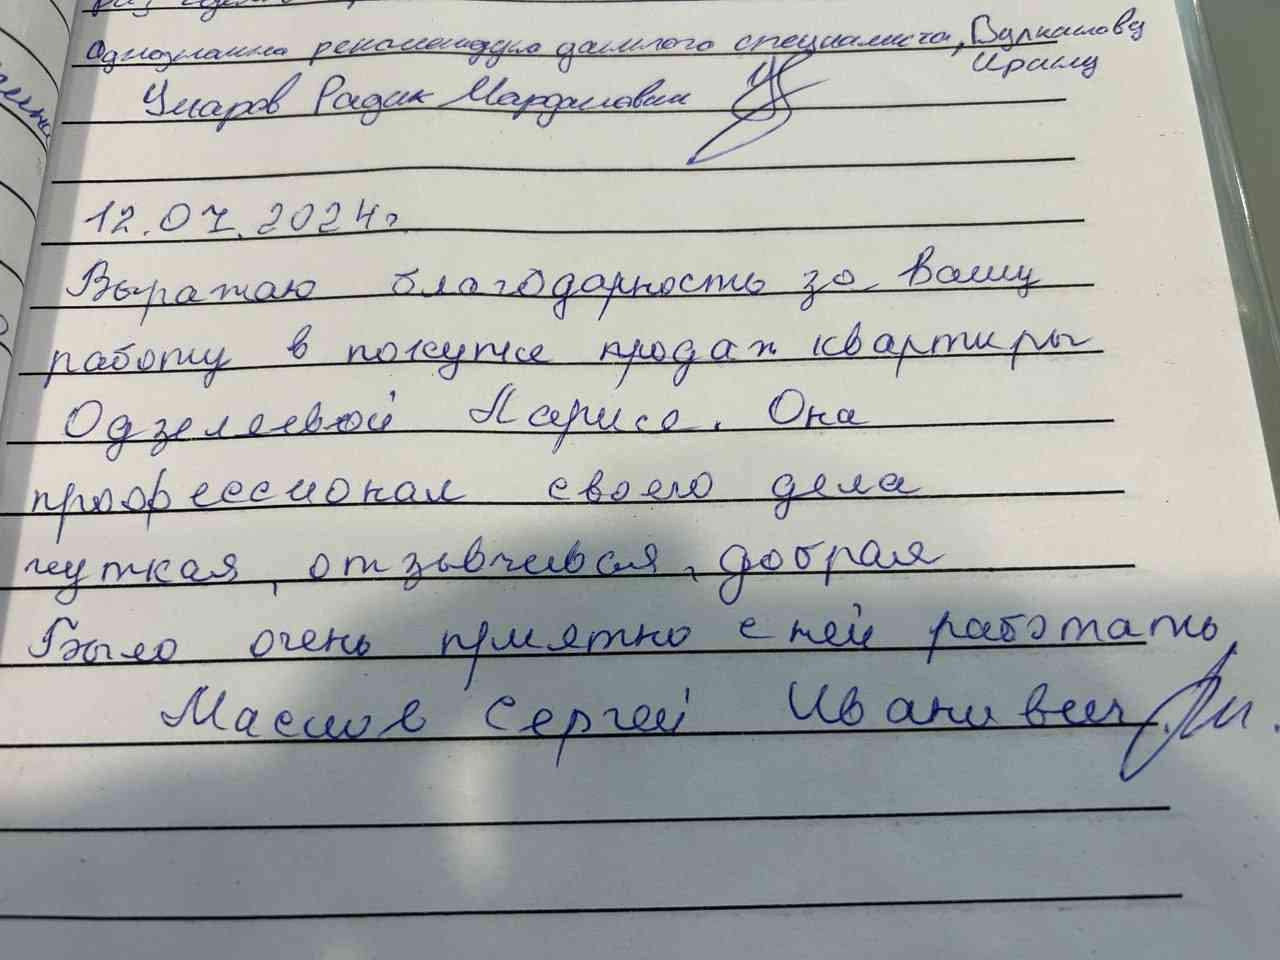 раз
Однозначно рекомендую данного специалиста, Вулкановву
Ирину
Умаров Радик Марданович
12.07.2024г
Выражаю благодарность за Вашу
работу в покупке продаж квартиры
Одзелеевой Ларисе. Она
профессионал своего дела
чуткая, отзывчивая, добрая
Было очень приятно с ней работать
Маслов Сергей Иванивич